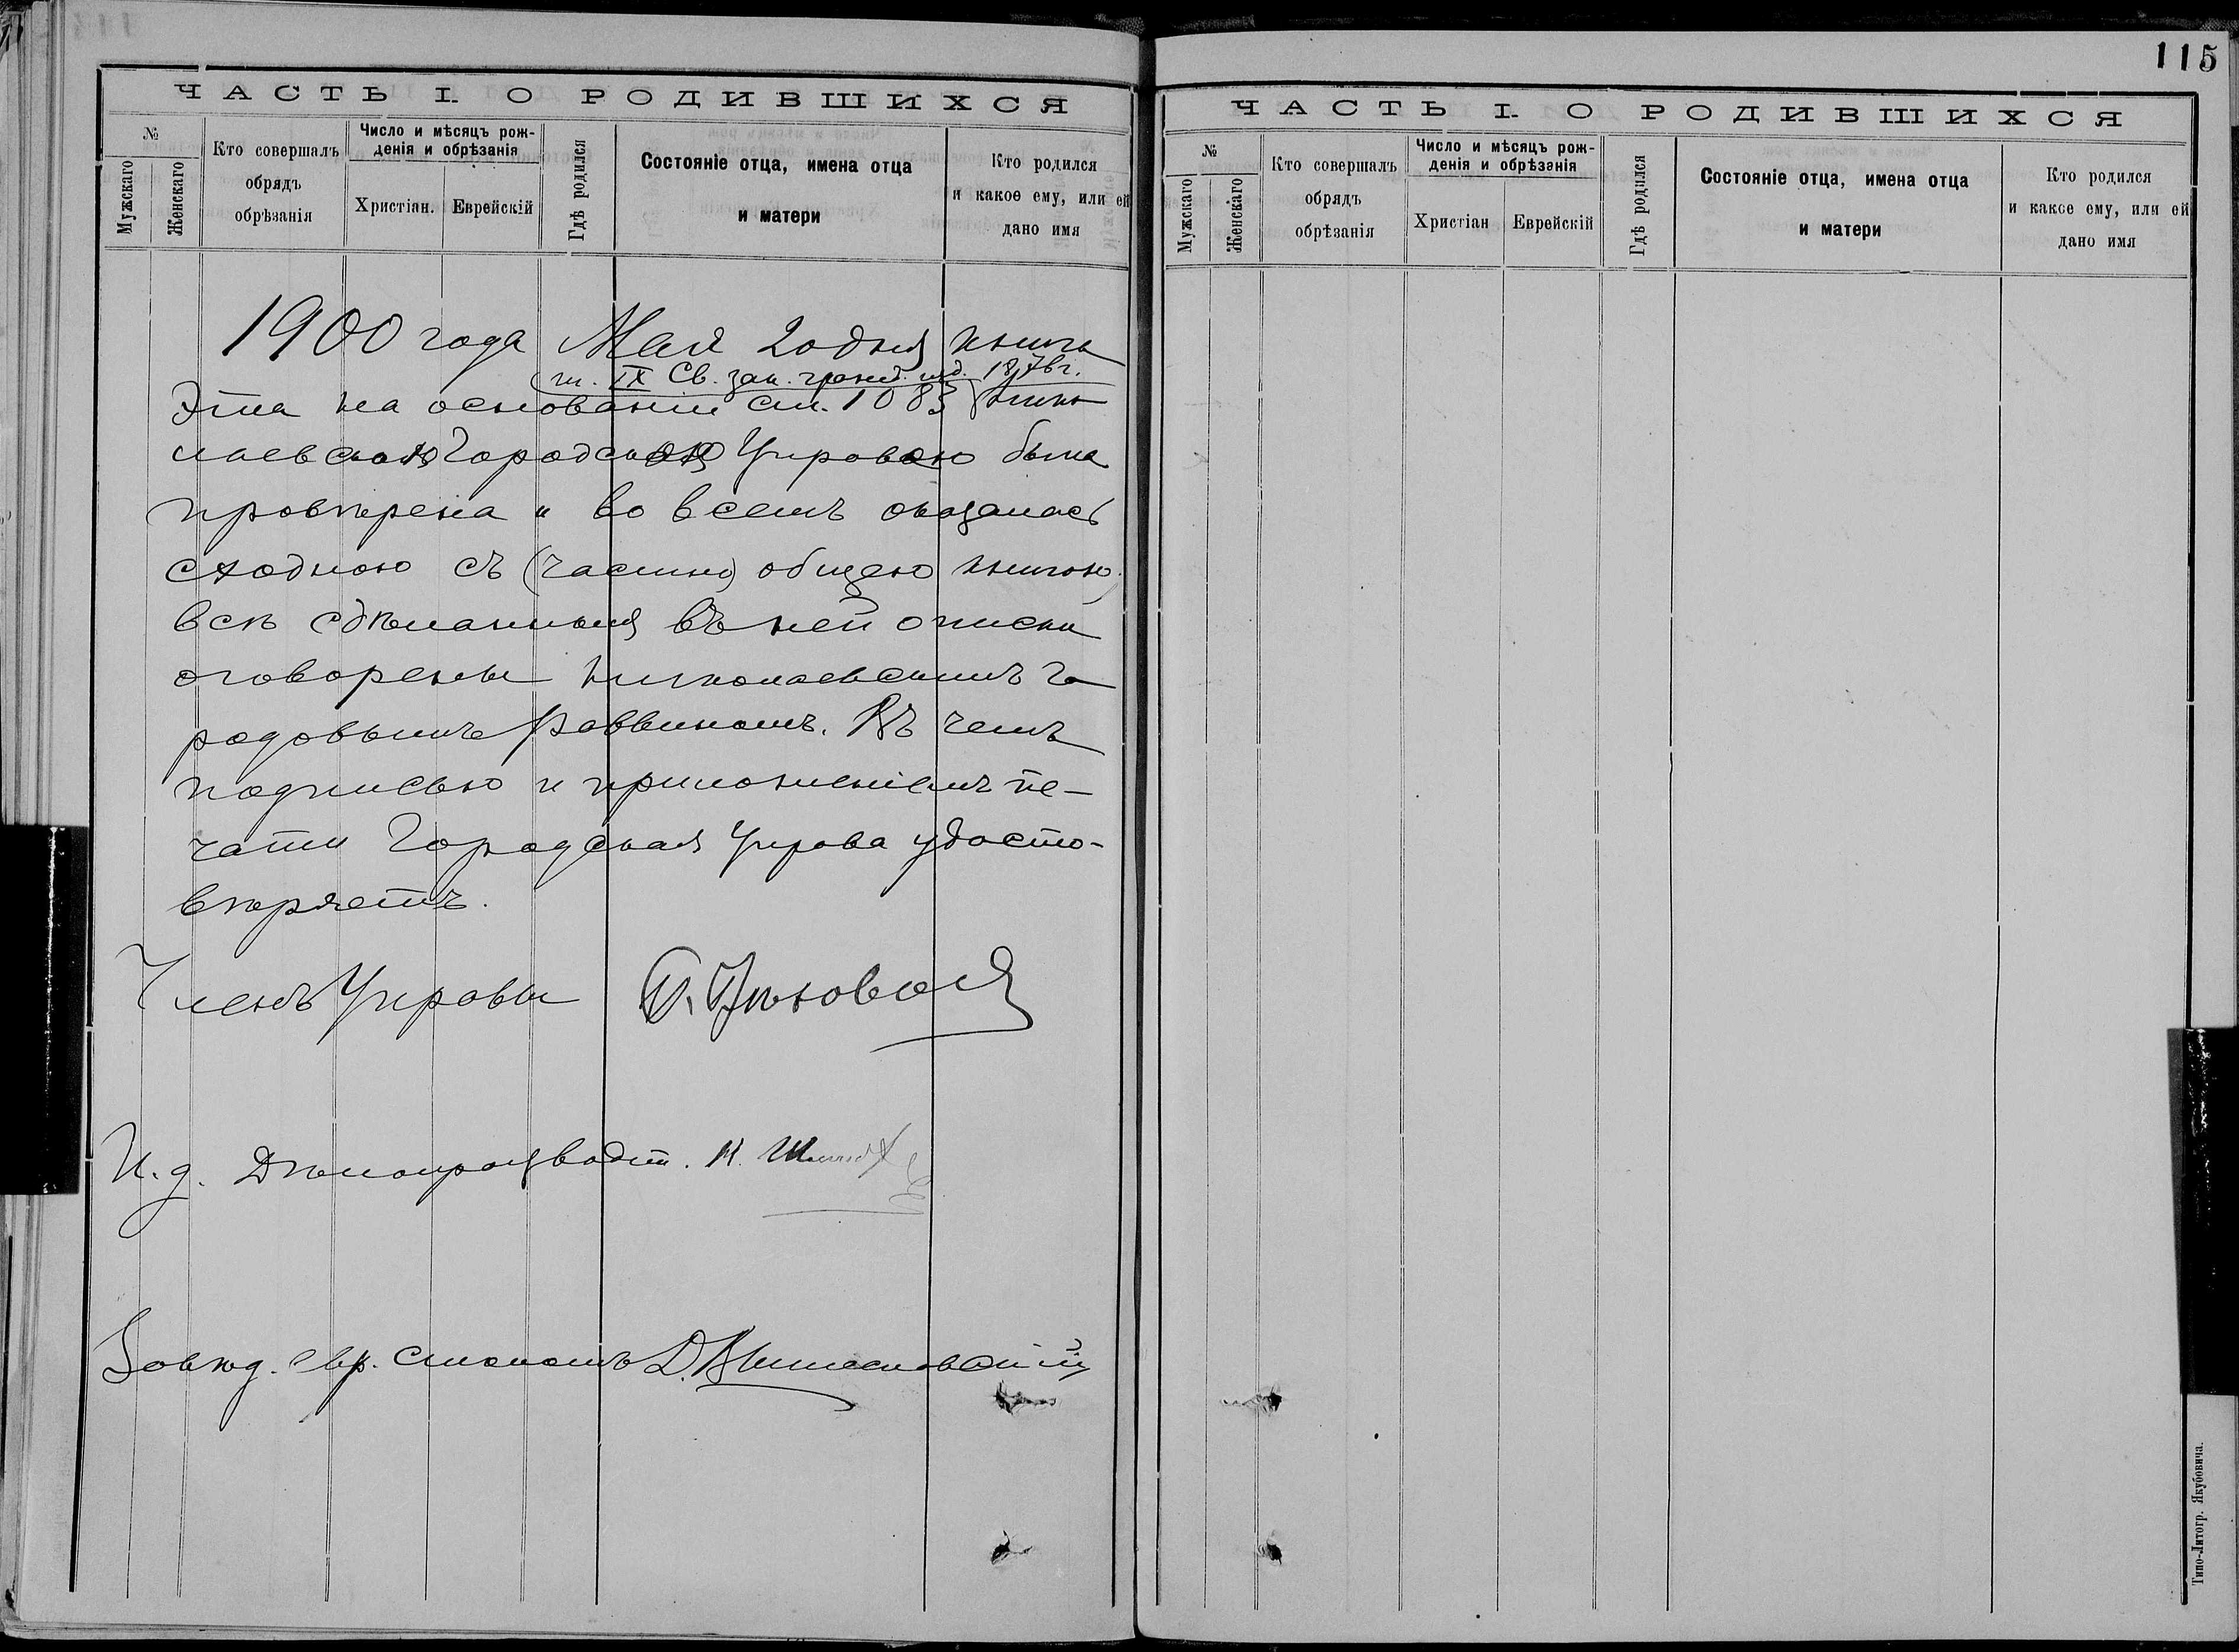 115
ЧАСТЬ I. О РОДИВШИХСЯ
№
Мужскаго
Женскаго
Кто совершалъ
обрядъ
обрѣзанія
Число и мѣсяцъ рож-
денія и обрѣзанія
Христіан.
Еврейскій
Гдѣ родился
Состояніе отца, имена отца
и матери
Кто родился
и какое ему, или ей
дано имя
1900 года Мая 2 дня книга
т. IX Св. зак. гражд. изд. 1876 г.
эта на основаніи ст. 1083 Нико
лаевскою Городскою Управою была
провѣрена и во всемъ оказалась
сходною съ (частью) общею книгою,
всѣ сдѣланныя въ ней описки
оговорены Николаевскимъ Го
родовымъ Раввиномъ. Въ чемъ
подписью и приложеніемъ пе-
чати Городская Управа удосто-
вѣряетъ.
Членъ Управы
И. д. Дѣлопроизводит. К.
Завѣд. евр. столомъ Д.
ЧАСТЬ I. О РОДИВШИХСЯ
№
Мужскаго
Женскаго
Кто совершалъ
обрядъ
обрѣзанія
Число и мѣсяцъ рож-
денія и обрѣзанія
Христіан
Еврейскій
Гдѣ родился
Состояніе отца, имена отца
и матери
Кто родился
и какое ему, или ей
дано имя
Типо-Литогр. Якубовича.